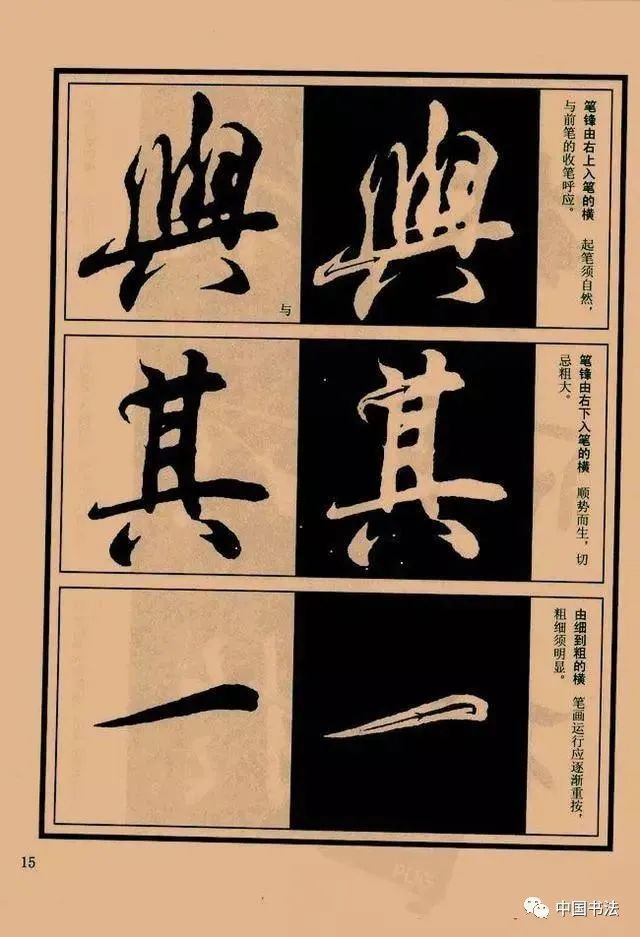 笔锋由右上入笔的横 起笔须自然，
与前笔的收笔呼应。
與
與
与
笔锋由右下入笔的横 顺势而生，切
忌粗大。
其
其
由细到粗的横 笔画运行应逐渐重按，
粗细须明显。
一
一
15
中国书法